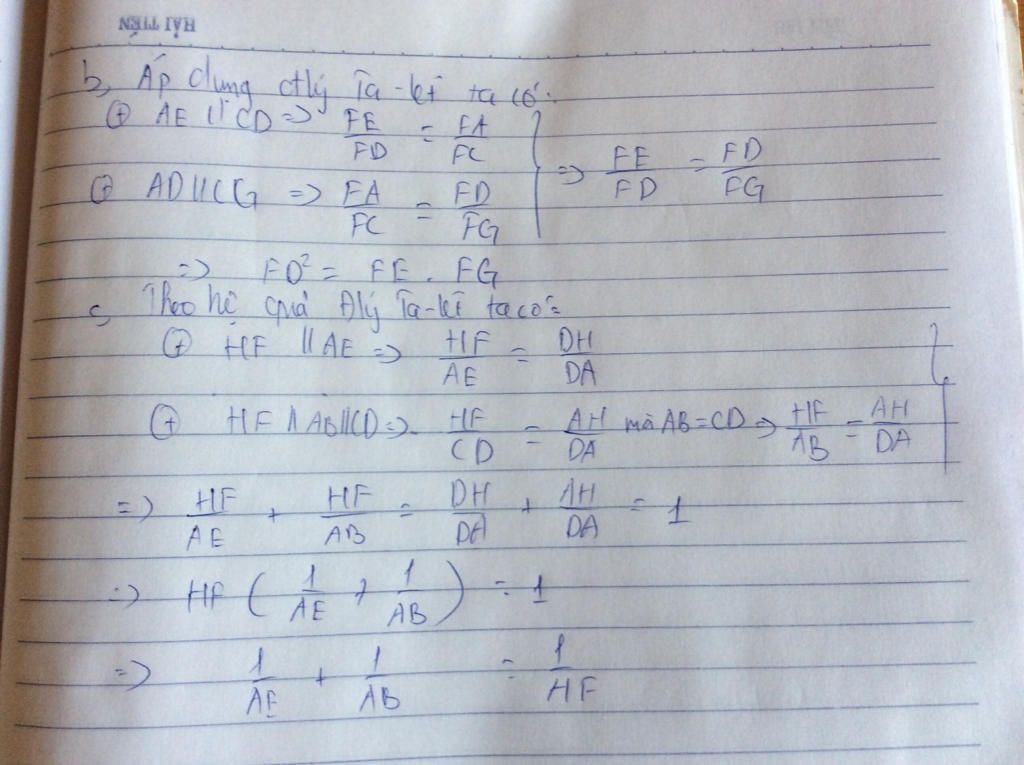 HẢI TIẾN
b, Áp dụng đlý Ta-lét ta có:
⊕ AE // CD => FE/FD = FA/FC
⊕ AD // CG => FA/FC = FD/FG } => FE/FD = FD/FG
=> FD² = FE . FG
c, Theo hệ quả Đlý Ta-lét ta có:
⊕ HF // AE => HF/AE = DH/DA
⊕ HF // AB // CD => HF/CD = AH/DA mà AB = CD => HF/AB = AH/DA }
=> HF/AE + HF/AB = DH/DA + AH/DA = 1
=> HF ( 1/AE + 1/AB ) = 1
=> 1/AE + 1/AB = 1/HF